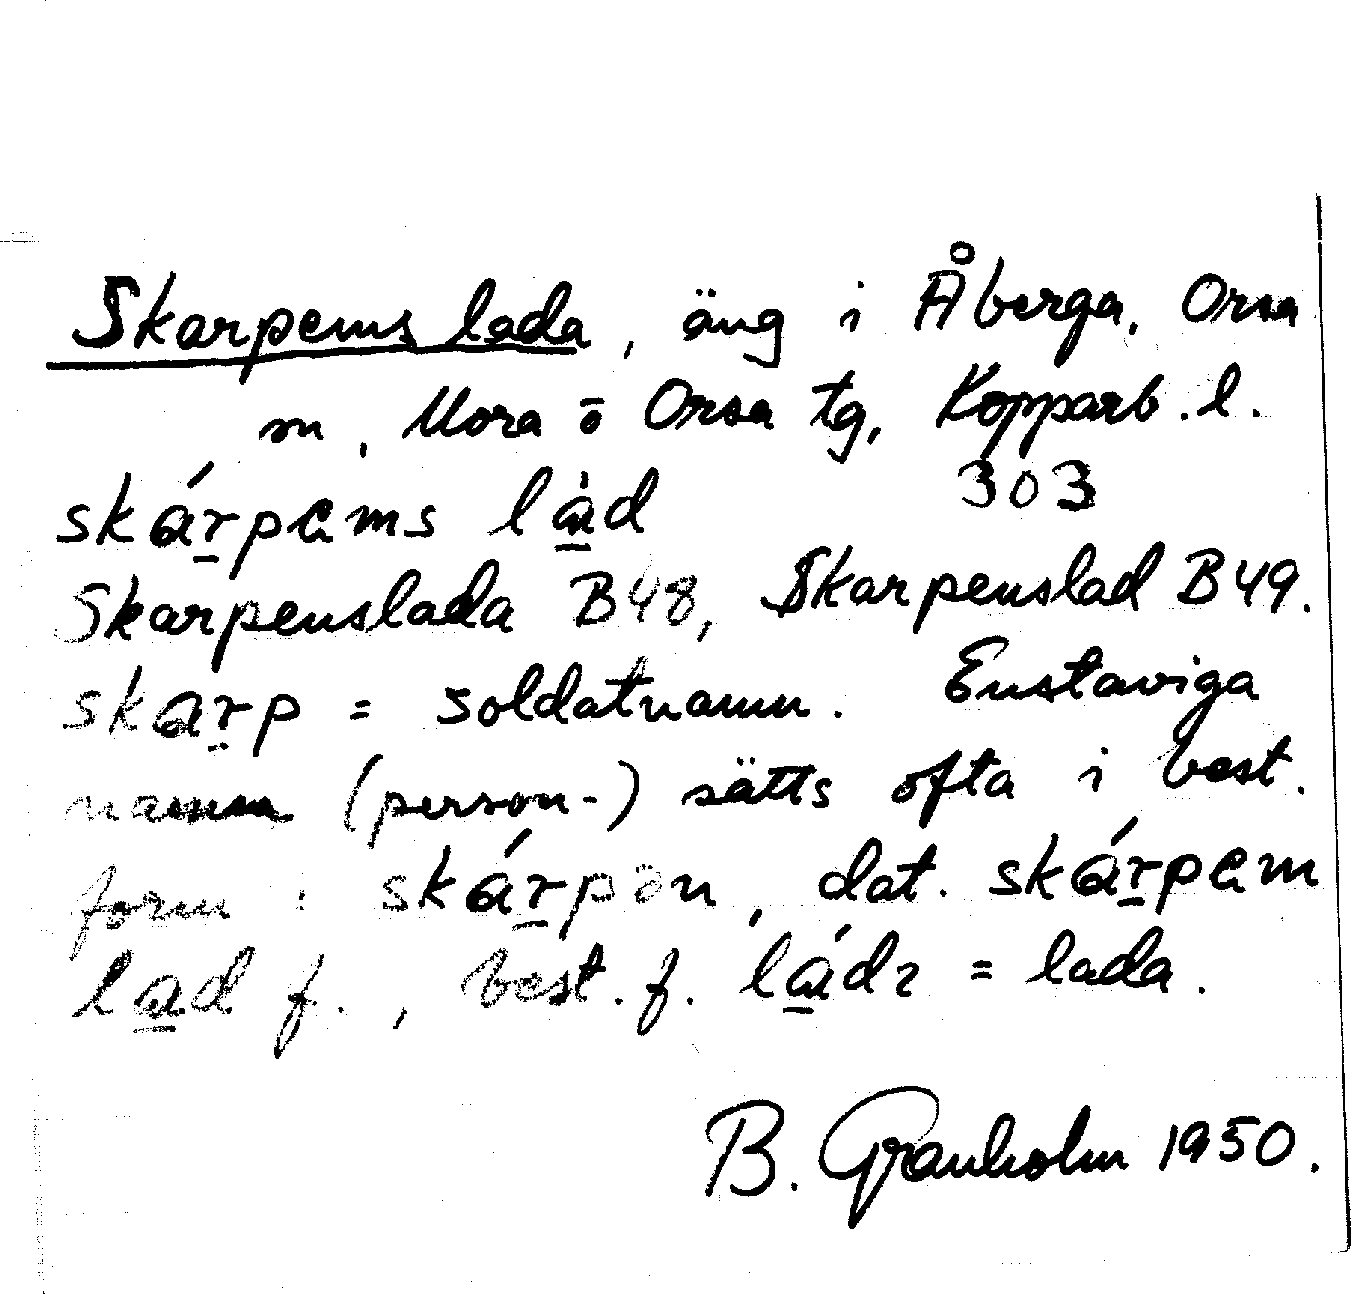 Skarpems lada, äng i Åberga, Orsa
sn, Mora o Orsa tg, Kopparb. l.
skárpems lád 303
Skarpenslada B48, Skarpenslad B49.
skarp = soldatnamn. Enstaviga
namn (person-) sätts ofta i best.
form: skárpən, dat. skárpem
lad f., best. f. ládı = lada.
B. Granholm 1950.